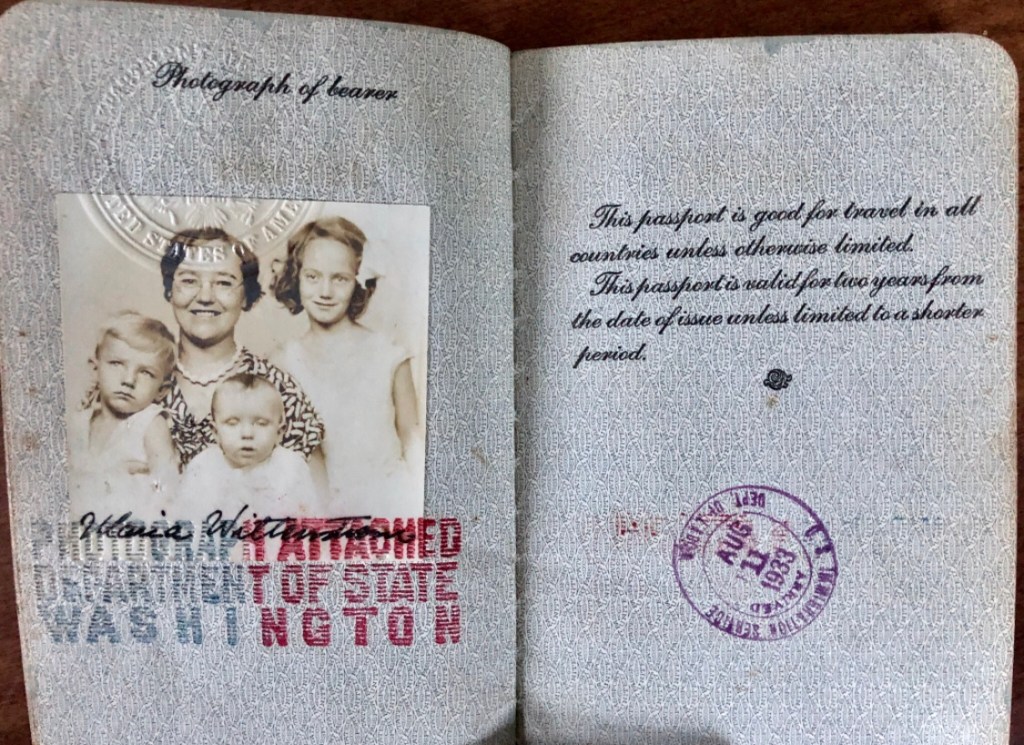 Photograph of bearer
DEPARTMENT OF
UNITED STATES OF AMERICA
Maria
PHOTOGRAPH ATTACHED
DEPARTMENT OF STATE
WASHINGTON
This passport is good for travel in all
countries unless otherwise limited.
This passport is valid for two years from
the date of issue unless limited to a shorter
period.
U.S. IMMIGRATION SERVICE
DEPT. OF LABOR
AUG
11
1933
ARRIVED